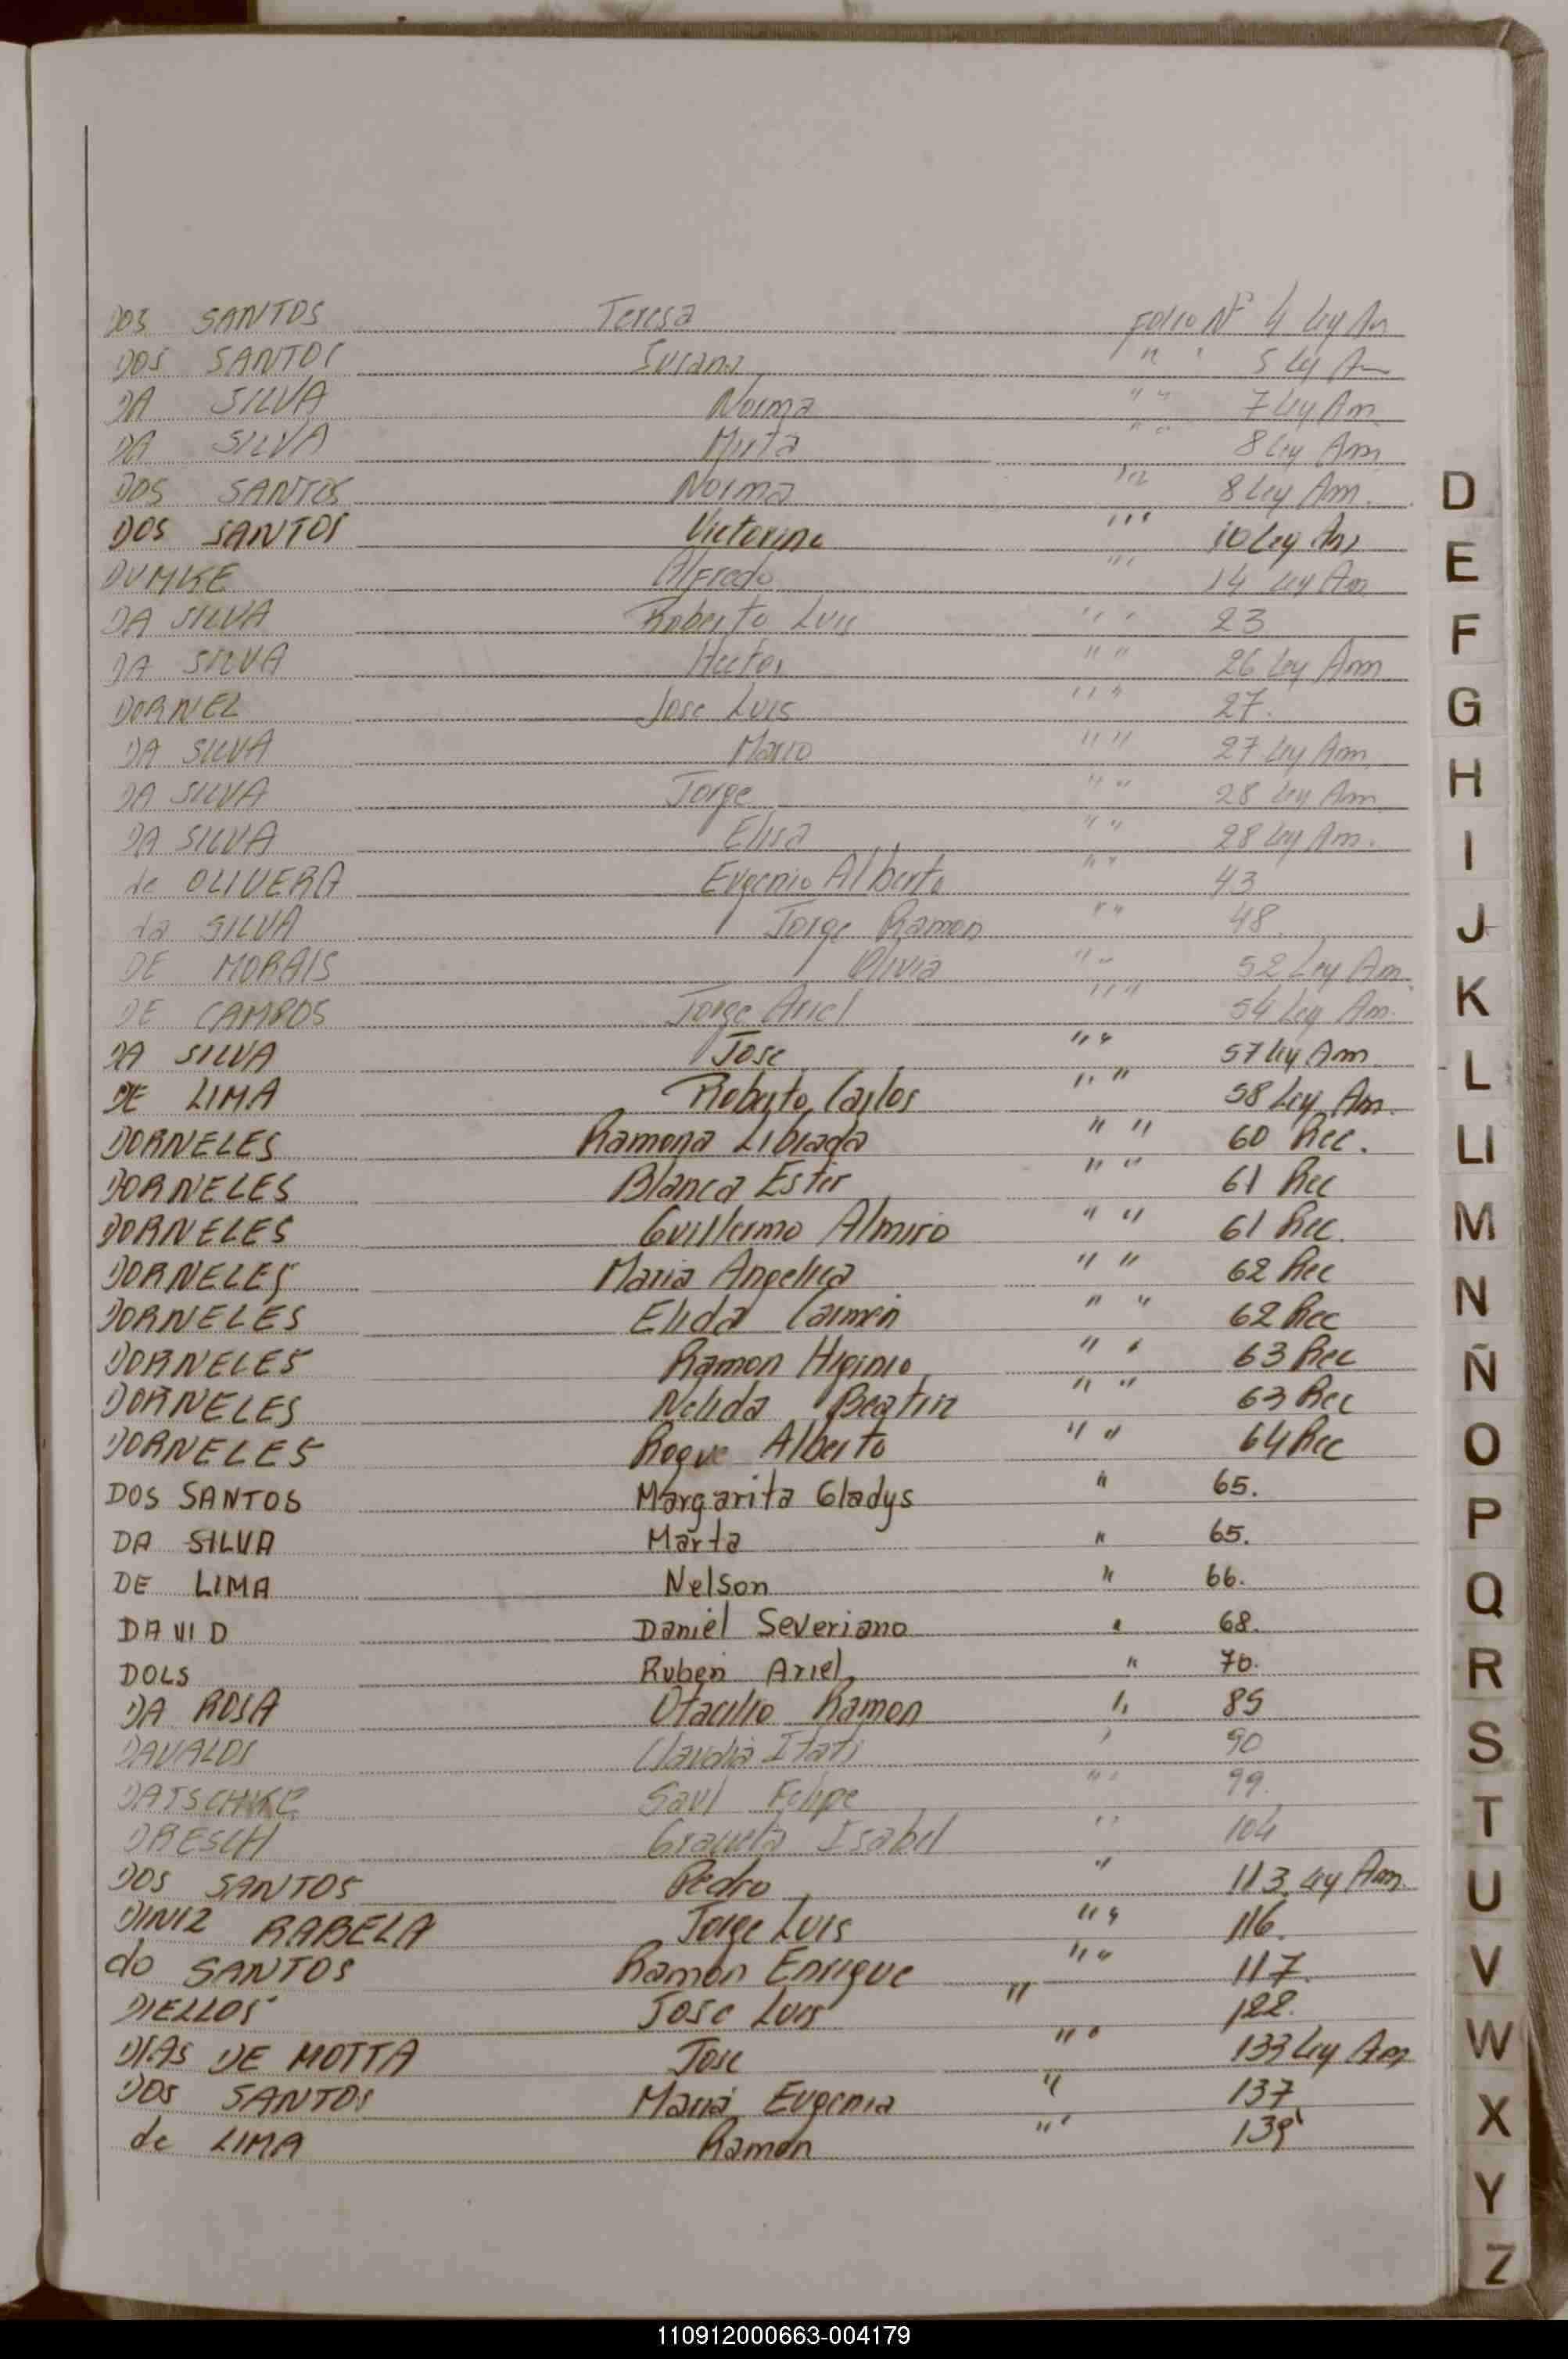 DOS SANTOS Teresa Folio Nº 4 Ley Am
DOS SANTOS Susana " " 5 Ley Am
DA SILVA Norma " " 7 Ley Am
DA SILVA Mirta " " 8 Ley Am
DOS SANTOS Norma " " 8 Ley Am.
DOS SANTOS Victorino " " 10 Ley Am
DUMKE Alfredo " " 14 Ley Am
DA SILVA Roberto Luis " " 23
DA SILVA Hector " " 26 Ley Am
DORNEL Jose Luis " " 27.
DA SILVA Mario " " 27 Ley Am
DA SILVA Jorge " " 28 Ley Am
DA SILVA Elisa " " 28 Ley Am.
de OLIVERA Eugenio Alberto " " 43
da SILVA Jorge Ramon " " 48.
DE MORAIS Olivia " " 52 Ley Am
DE CAMPOS Jorge Ariel " " 54 Ley Am.
DA SILVA Jose " " 57 Ley Am
DE LIMA Roberto Carlos " " 58 Ley Am.
DORNELES Ramona Librada " " 60 Rec.
DORNELES Blanca Ester " " 61 Rec
DORNELES Guillermo Almiro " " 61 Rec.
DORNELES Maria Angelica " " 62 Rec
DORNELES Elida Carmen " " 62 Rec
DORNELES Ramon Higinio " " 63 Rec
DORNELES Nelida Beatriz " " 63 Rec
DORNELES Roque Alberto " " 64 Rec
DOS SANTOS Margarita Gladys " 65.
DA SILVA Marta " 65.
DE LIMA Nelson " 66.
DAVID Daniel Severiano " 68.
DOLS Ruben Ariel " 70.
DA ROSA Otacilio Ramon " 85
DAVALOS Claudia Itati " 90
DATSCHKE Saul Felipe " " 99.
DRESCH Graciela Isabel " 104
DOS SANTOS Pedro " 113 Ley Am.
DINIZ RABELA Jorge Luis " " 116.
do SANTOS Ramon Enrique " " 117.
DIELLOS Jose Luis " 122.
DIAS DE MOTTA Jose " " 133 Ley Am
DOS SANTOS Maria Eugenia " 137
de LIMA Ramon " " 139
D
E
F
G
H
I
J
K
L
LI
M
N
Ñ
O
P
Q
R
S
T
U
V
W
X
Y
Z
110912000663-004179